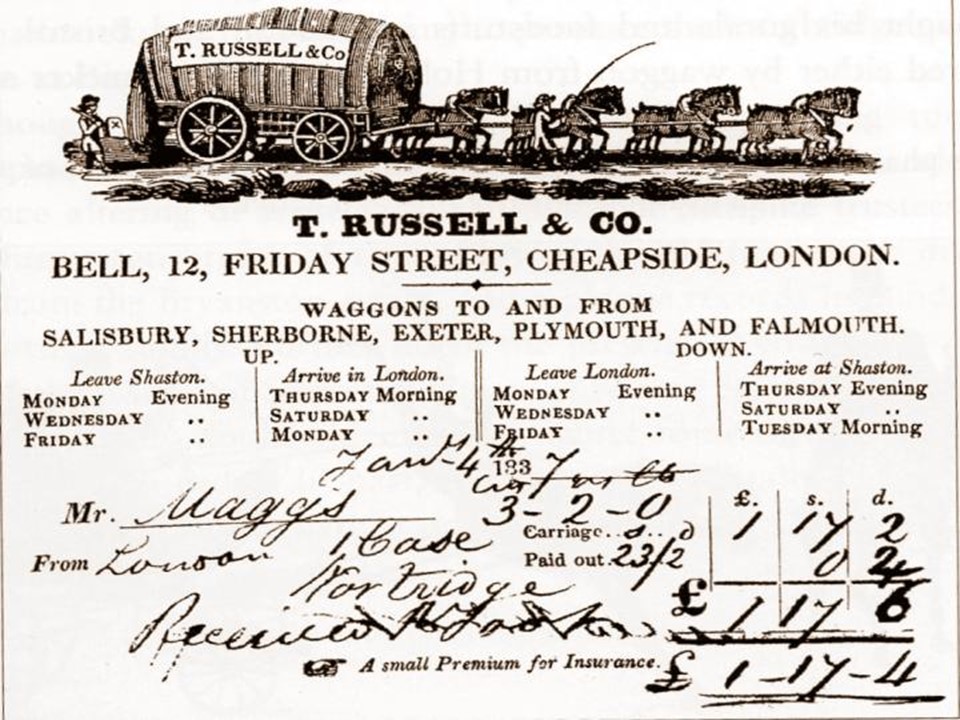 T. RUSSELL & Co
T. RUSSELL & CO.
BELL, 12, FRIDAY STREET, CHEAPSIDE, LONDON.
WAGGONS TO AND FROM
SALISBURY, SHERBORNE, EXETER, PLYMOUTH, AND FALMOUTH.
UP. DOWN.
Leave Shaston. Arrive in London. Leave London. Arrive at Shaston.
MONDAY Evening THURSDAY Morning MONDAY Evening THURSDAY Evening
WEDNESDAY .. SATURDAY .. WEDNESDAY .. SATURDAY ..
FRIDAY .. MONDAY .. FRIDAY .. TUESDAY Morning
Jany 4th 1837
Cwt qr lb
Mr. Maggs 3-2-0 £. s. d.
Carriage. s. d 1 17 2
From London 1 Case Paid out. 23/2 0
£ 1 17 6
Received
A small Premium for Insurance. £ 1-17-4